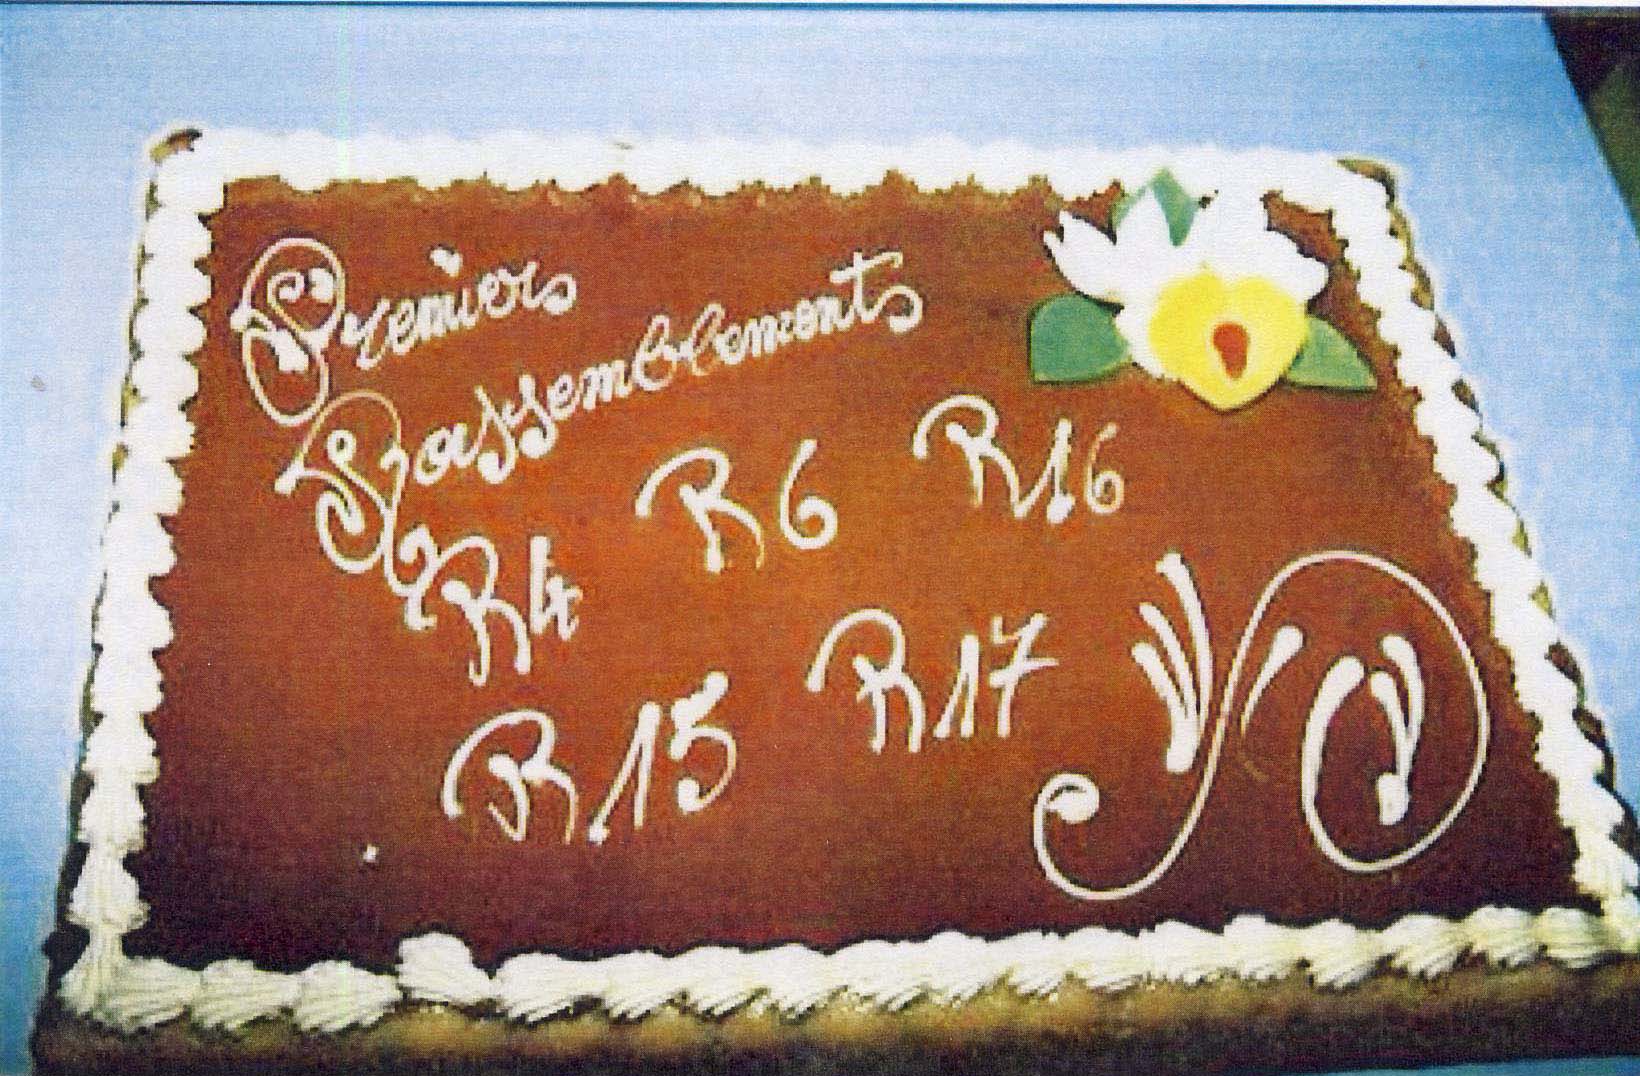 Premiers
Rassemblements
R4 R6 R16
R15 R17